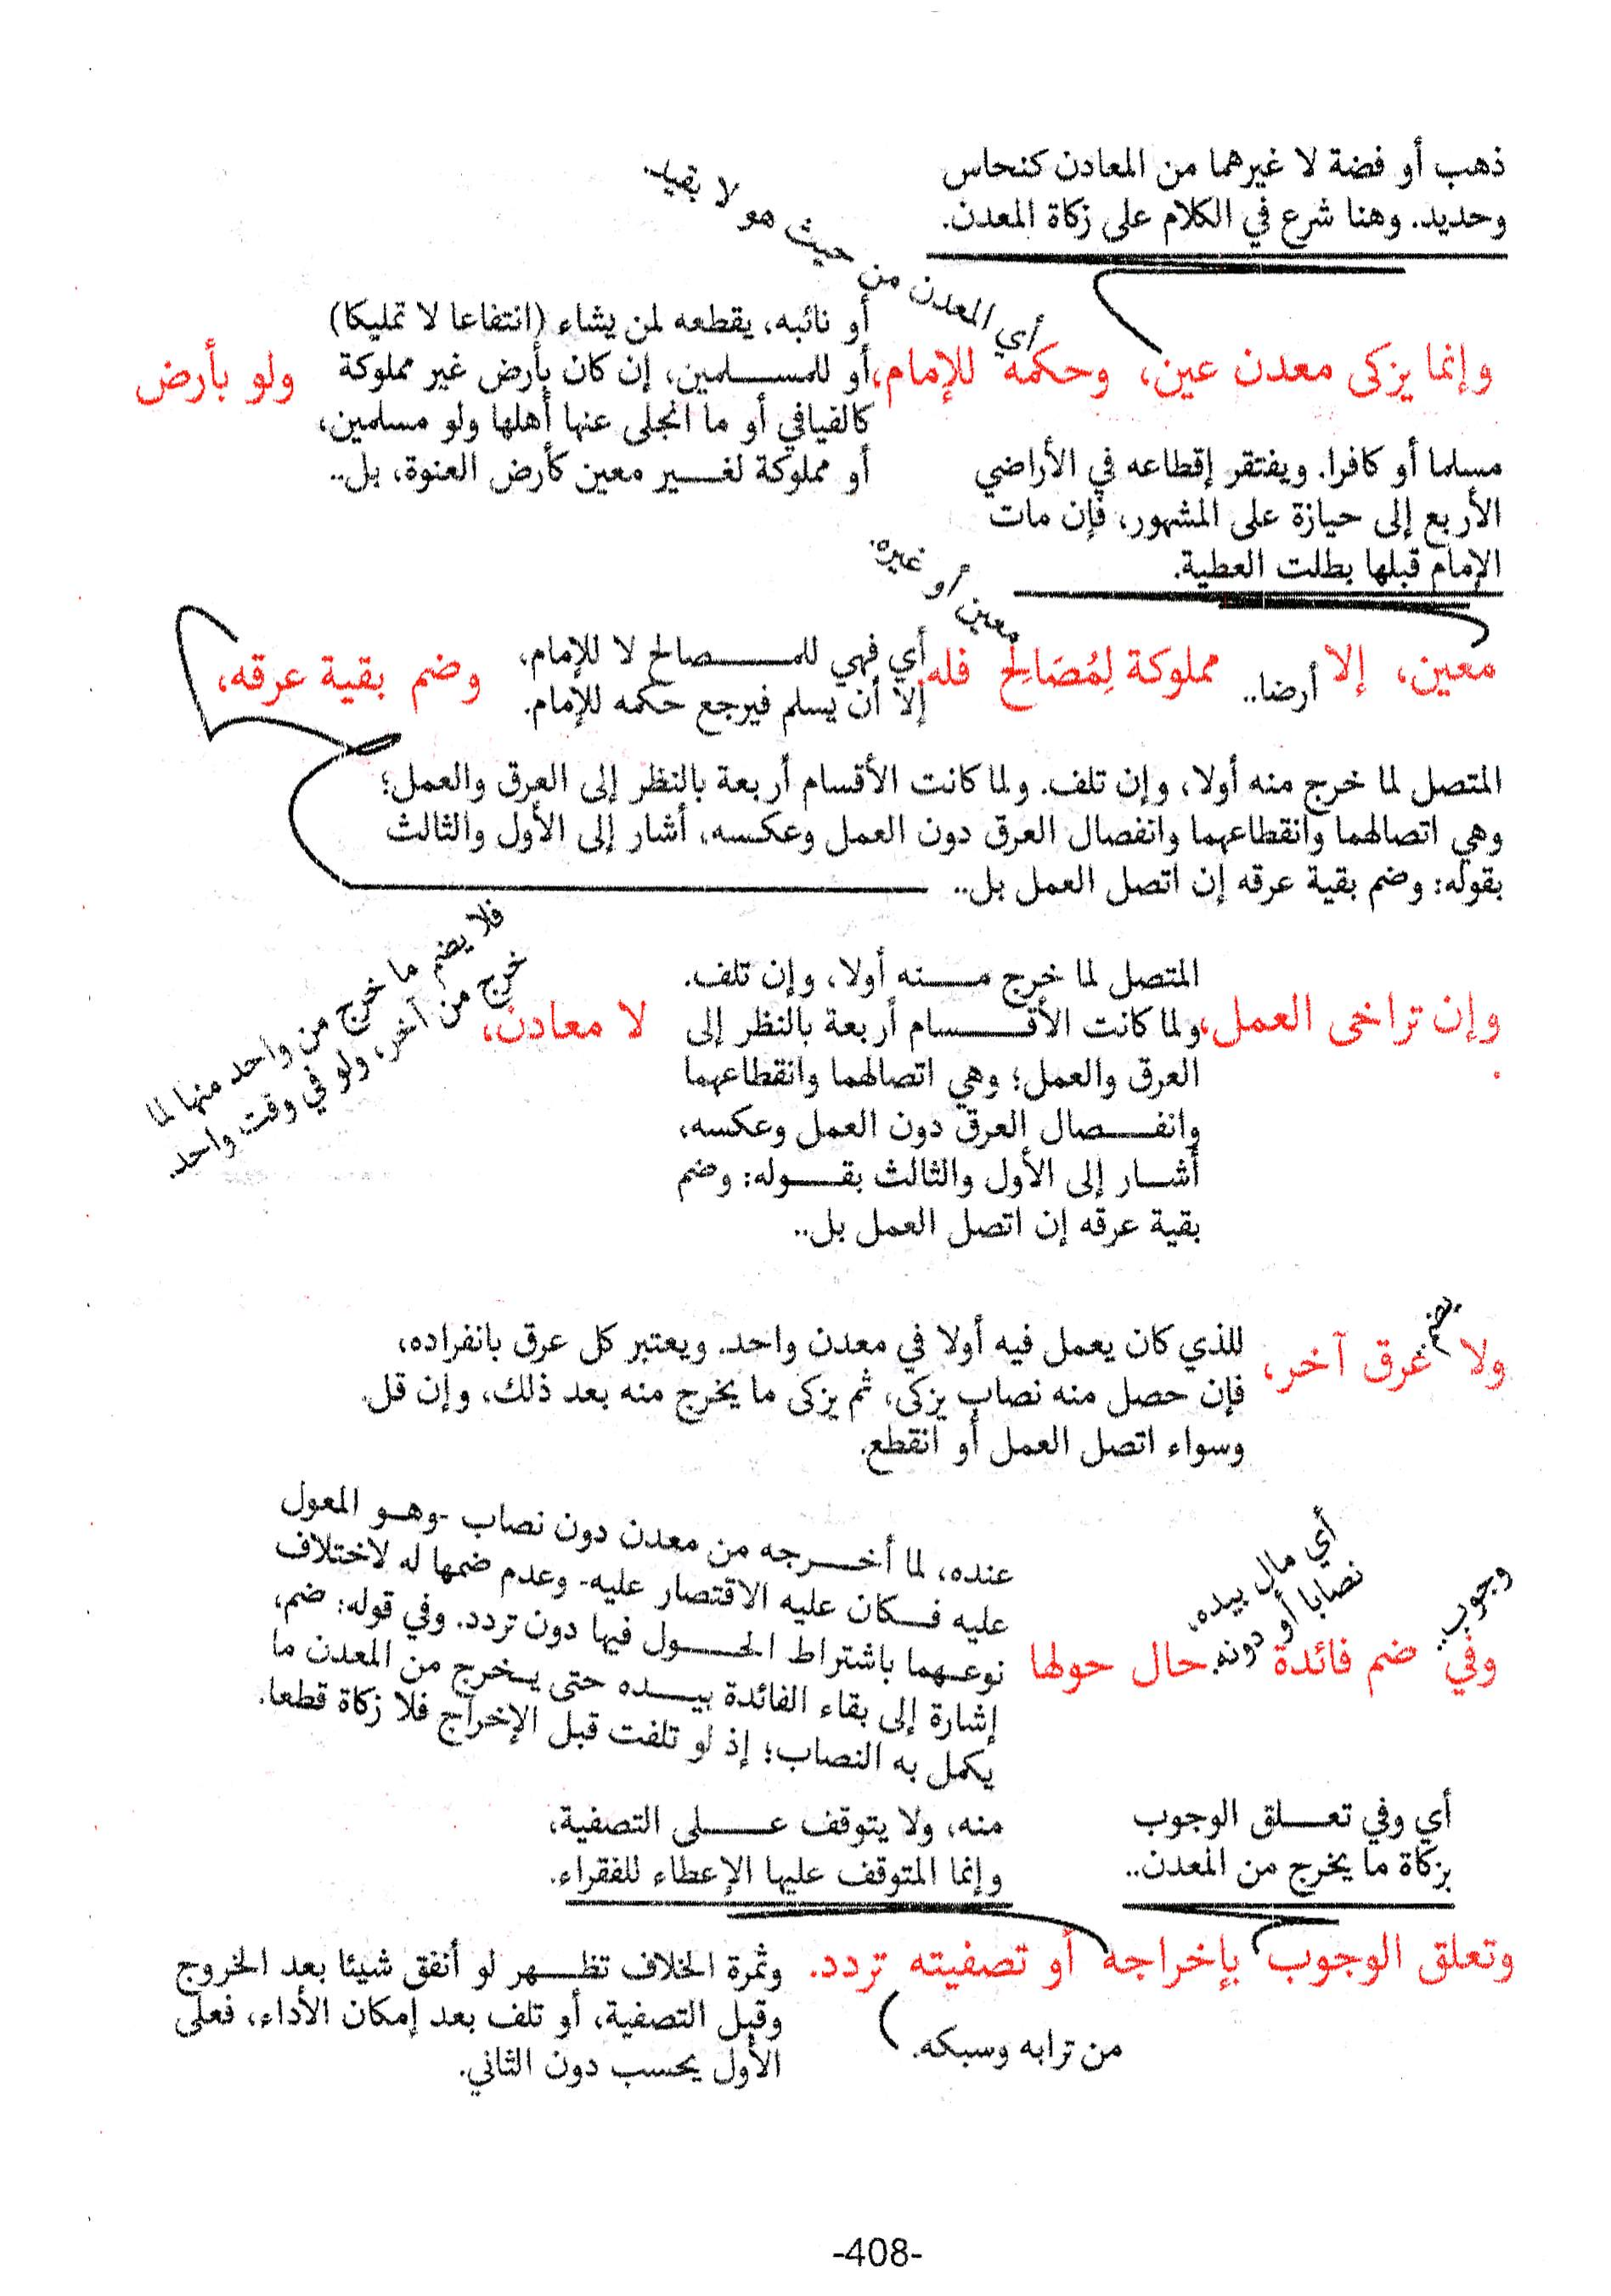 ذهب أو فضة لا غيرهما من المعادن كنحاس
وحديد. وهنا شرع في الكلام على زكاة المعدن.
وإنما يزكى معدن عين، وحكمه للإمام،
أي المعدن من حيث هو لا بقيد.
أو نائبه، يقطعه لمن يشاء (انتفاعا لا تمليكا)
أو للمسلمين، إن كان بأرض غير مملوكة
كالفيافي أو ما انجلى عنها أهلها ولو مسلمين،
أو مملوكة لغير معين كأرض العنوة، بل..
ولو بأرض
مسلما أو كافرا. ويفتقر إقطاعه في الأراضي
الأربع إلى حيازة على المشهور، فإن مات
الإمام قبلها بطلت العطية.
معين، إلا
أرضا..
مملوكة لِمُصَالِحٍ فله
معين أو غيره.
أي فهي للمصالح لا للإمام،
إلا أن يسلم فيرجع حكمه للإمام.
وضم بقية عرقه،
المتصل لما خرج منه أولا، وإن تلف. ولما كانت الأقسام أربعة بالنظر إلى العرق والعمل؛
وهي اتصالهما وانقطاعهما وانفصال العرق دون العمل وعكسه، أشار إلى الأول والثالث
بقوله: وضم بقية عرقه إن اتصل العمل بل..
وإن تراخى العمل،
المتصل لما خرج منه أولا، وإن تلف.
ولما كانت الأقسام أربعة بالنظر إلى
العرق والعمل؛ وهي اتصالهما وانقطاعهما
وانفصال العرق دون العمل وعكسه،
أشار إلى الأول والثالث بقوله: وضم
بقية عرقه إن اتصل العمل بل..
لا معادن،
فلا يضم ما خرج من واحد منها لما
خرج من آخر، ولو في وقت واحد.
ولا
يضم..
عرق آخر،
للذي كان يعمل فيه أولا في معدن واحد. ويعتبر كل عرق بانفراده،
فإن حصل منه نصاب يزكى، ثم يزكى ما يخرج منه بعد ذلك، وإن قل.
وسواء اتصل العمل أو انقطع.
وفي
وجوب..
ضم فائدة
أي مال بيده،
نصابا أو دونه.
حال حولها
عنده، لما أخرجه من معدن دون نصاب -وهو المعول
عليه فكان عليه الاقتصار عليه- وعدم ضمها له لاختلاف
نوعهما باشتراط الحول فيها دون تردد. وفي قوله: ضم،
إشارة إلى بقاء الفائدة بيده حتى يخرج من المعدن ما
يكمل به النصاب؛ إذ لو تلفت قبل الإخراج فلا زكاة قطعا.
أي وفي تعلق الوجوب
بزكاة ما يخرج من المعدن..
منه، ولا يتوقف على التصفية،
وإنما المتوقف عليها الإعطاء للفقراء.
وتعلق الوجوب بإخراجه أو تصفيته تردد.
من ترابه وسبكه.
وثمرة الخلاف تظهر لو أنفق شيئا بعد الخروج
وقبل التصفية، أو تلف بعد إمكان الأداء، فعلى
الأول يحسب دون الثاني.
-408-